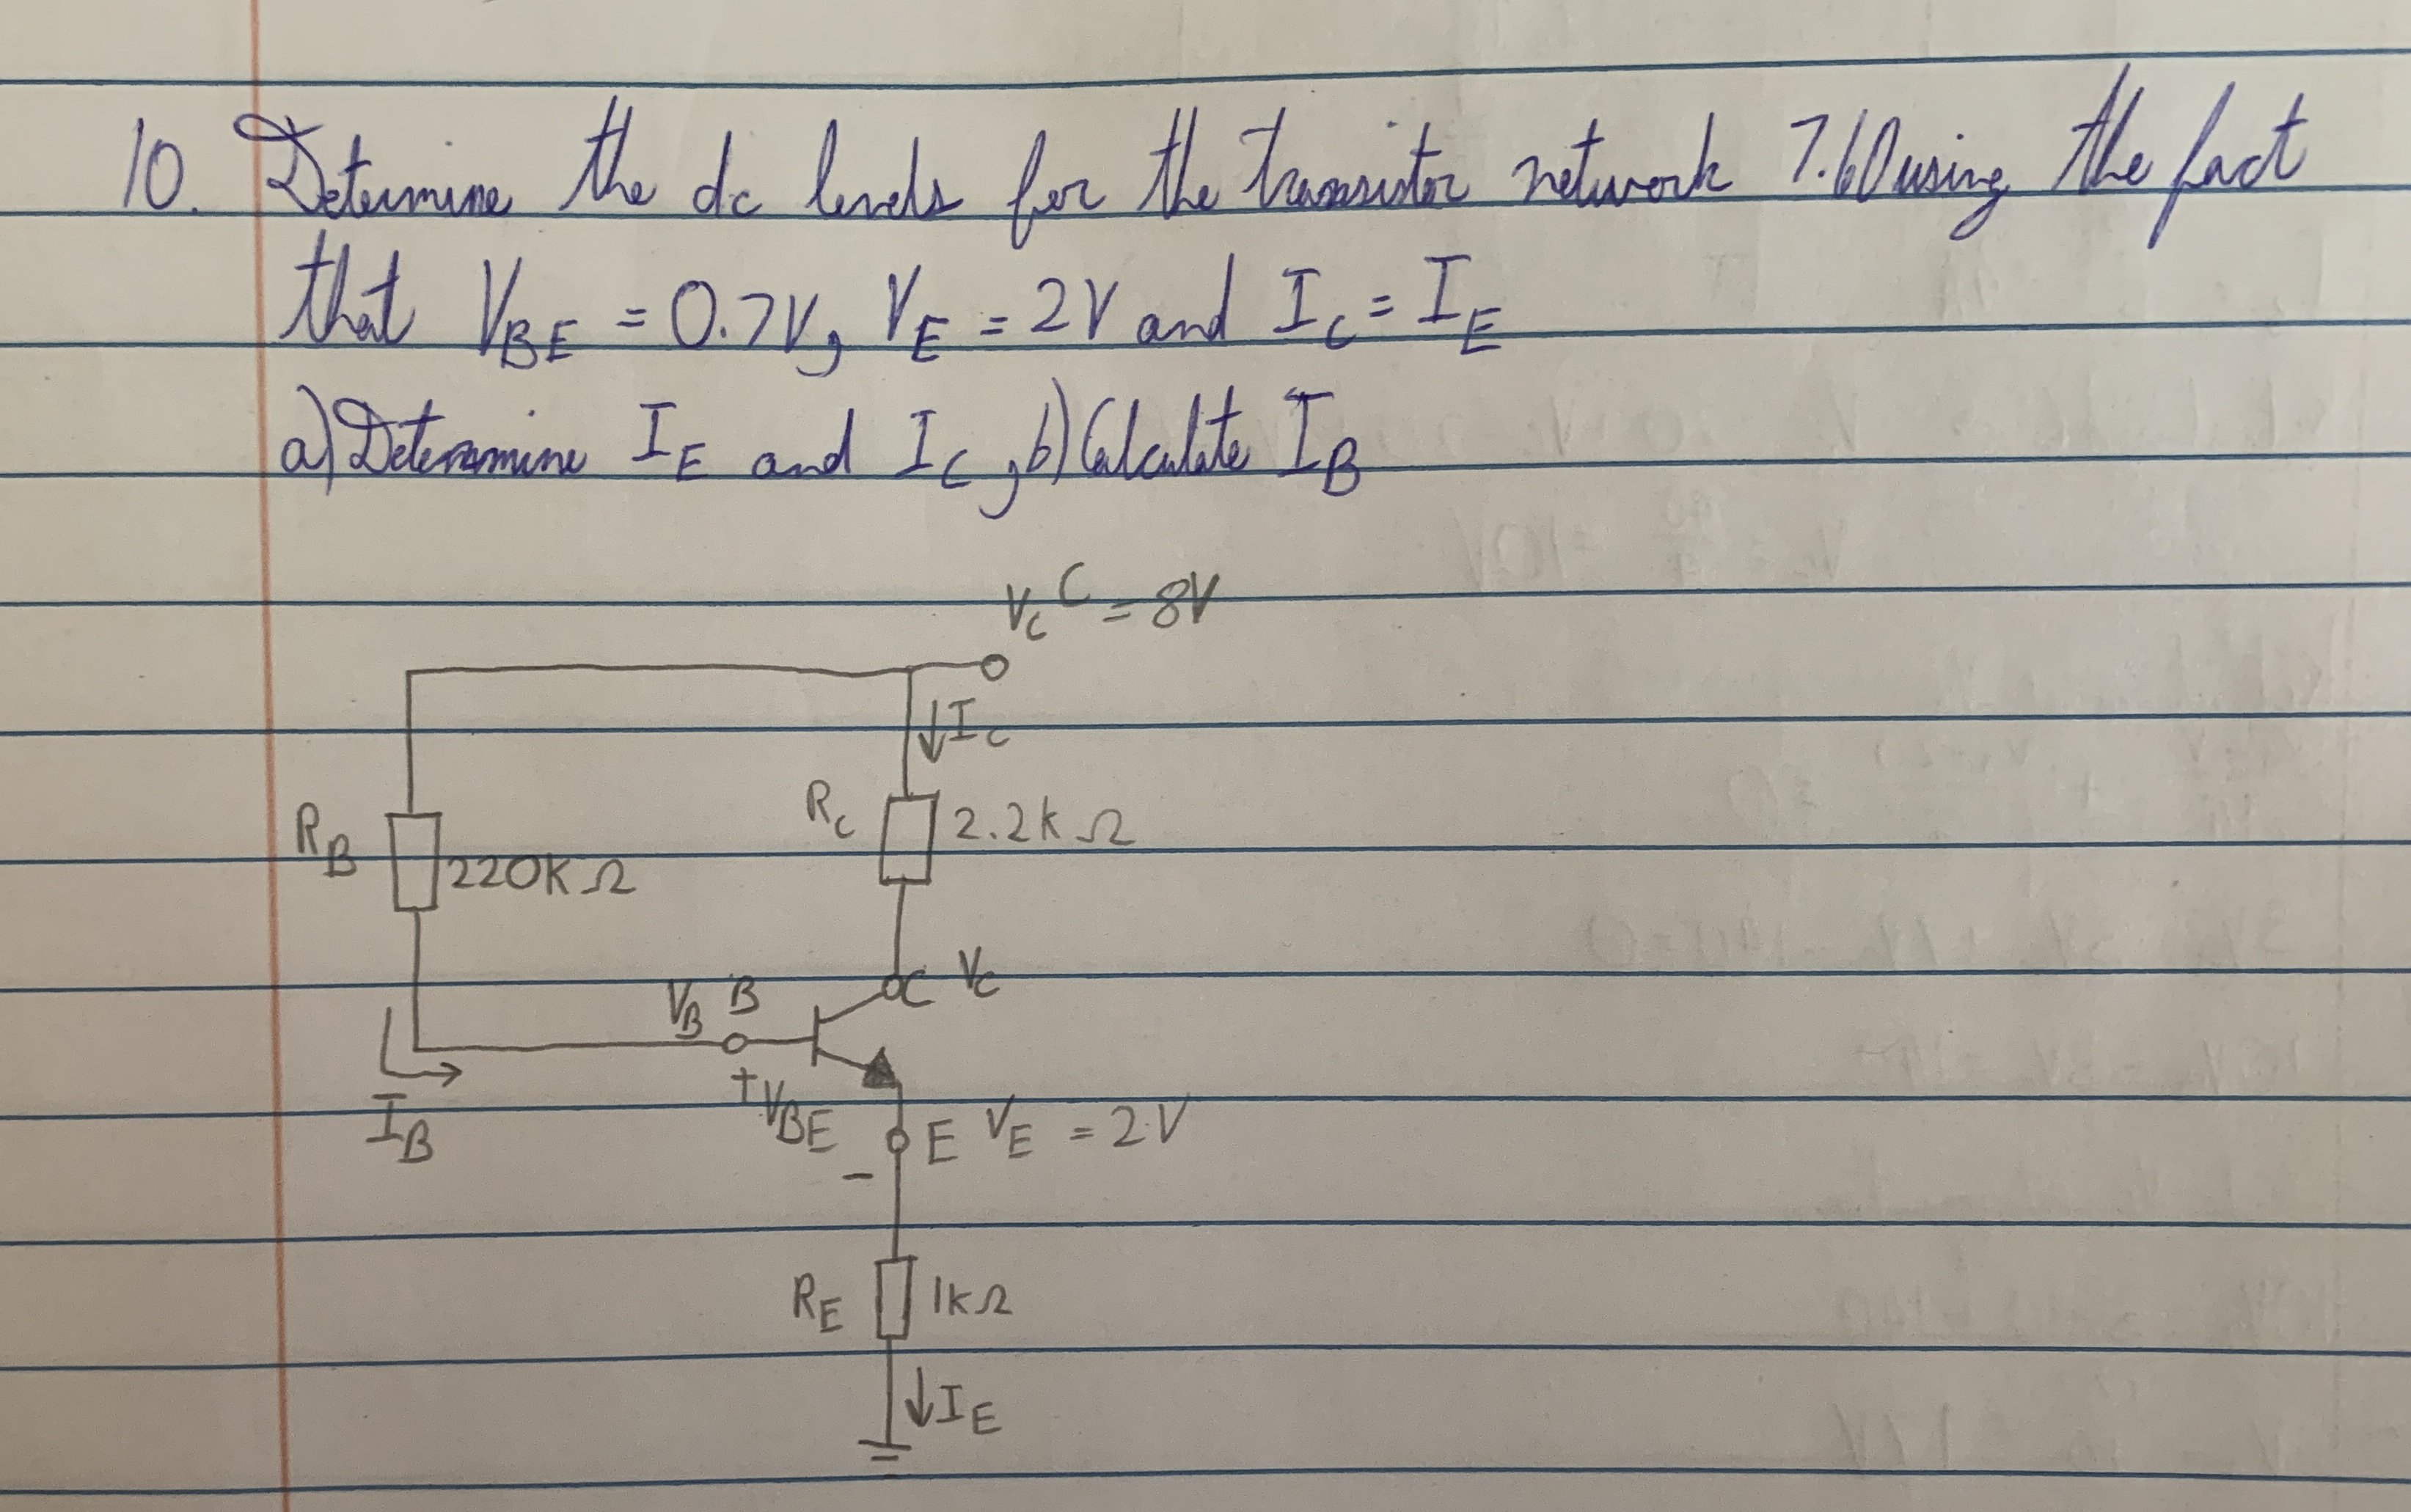 10. Determine the dc levels for the transistor network 7.60 using the fact
that V_BE = 0.7V, V_E = 2V and I_C = I_E
a) Determine I_E and I_C, b) Calculate I_B
V_CC = 8V
I_C
R_C 2.2kΩ
R_B 220kΩ
C V_C
V_B B
+V_BE -
I_B
E V_E = 2V
R_E 1kΩ
I_E